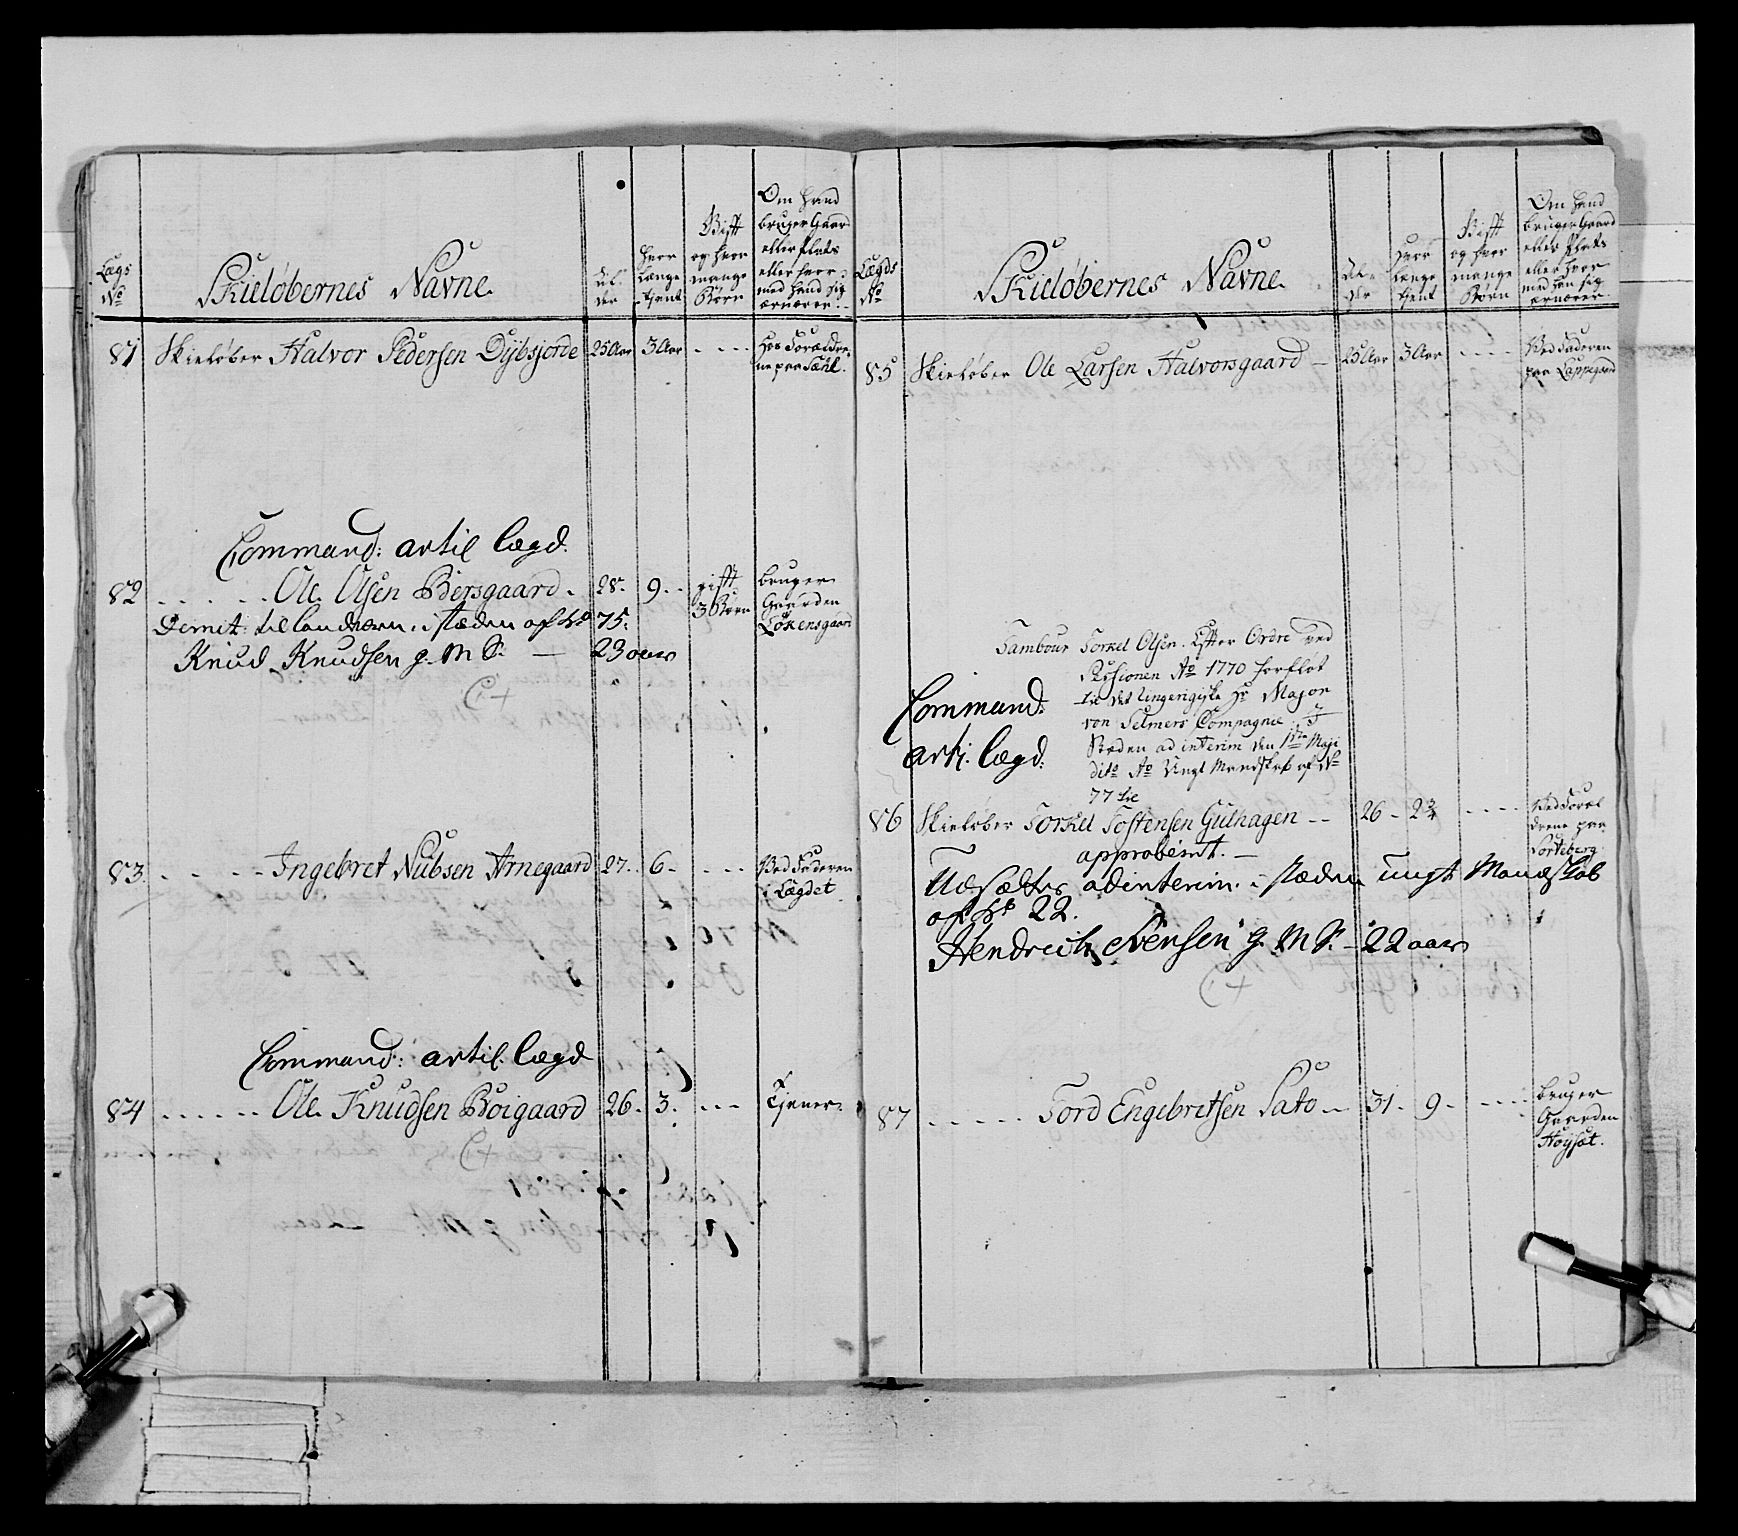 Lægs
No
Skieløbernes Navne
Al-
der
hvor
længe
tjent
Gift
og hvor
mange
Børn
Om hand
bruger Gaard
eller Plats
eller hvor-
med hand sig
ærnærer
81 Skieløber Halvor Pedersen Dybsjorde 25 Aar 3 Aar - - - Hos Forældre-
ne paa
Command: artil lægd.
82 - - - Ole Olsen Bersgaard. 28. 9. gift 3 Børn bruger
Gaarden
Løkensgaard
Demit: til landværn. i stæden af No 75.
Knud Knudsen g. M S. — 23 aar
83. - - - Ingebret Nubsen Arnegaard 27. 6. - - - Ved Faderen
i Lægdet
Command: artil. lægd
84 - - - Ole Knudsen Boigaard 26. 3. - - - Tjener
Lægds
No
Skieløbernes Navne.
Al-
der
hvor
længe
tjent
Gift
og hvor
mange
Børn
Om hand
bruger Gaard
eller Plats
eller hvor
med han sig
ærnærer
85 Skieløber Ole Larsen Halvorsgaard — 25 Aar 3 Aar - - - Ved Faderen
paa Lappegaard
Tambour Torkel Olsen. Efter Ordre ved
Sessionen Ao 1770 forfløt
til det Ungerigiske Hr Major
von Selmers Compagnie. I
Stæden ad interim den 1ste Maji
dito Ao Ungt Mandskab af No
77 til
Command:
arti. lægd:
86 Skieløber Torkel Tostensen Gulhagen - - 26 - 2¾ - - - Ved Foræl
drene paa
Sorteberg
approberet. —
Udsættes ad interim. i stæden ungt Mandskab
af No 22.
Hendrich Svensen g. M S. - 22 aar
87 - - - Tord Engebretsen Sato — 31 - 9 - - - - bruger
Gaarden
Høysæt.